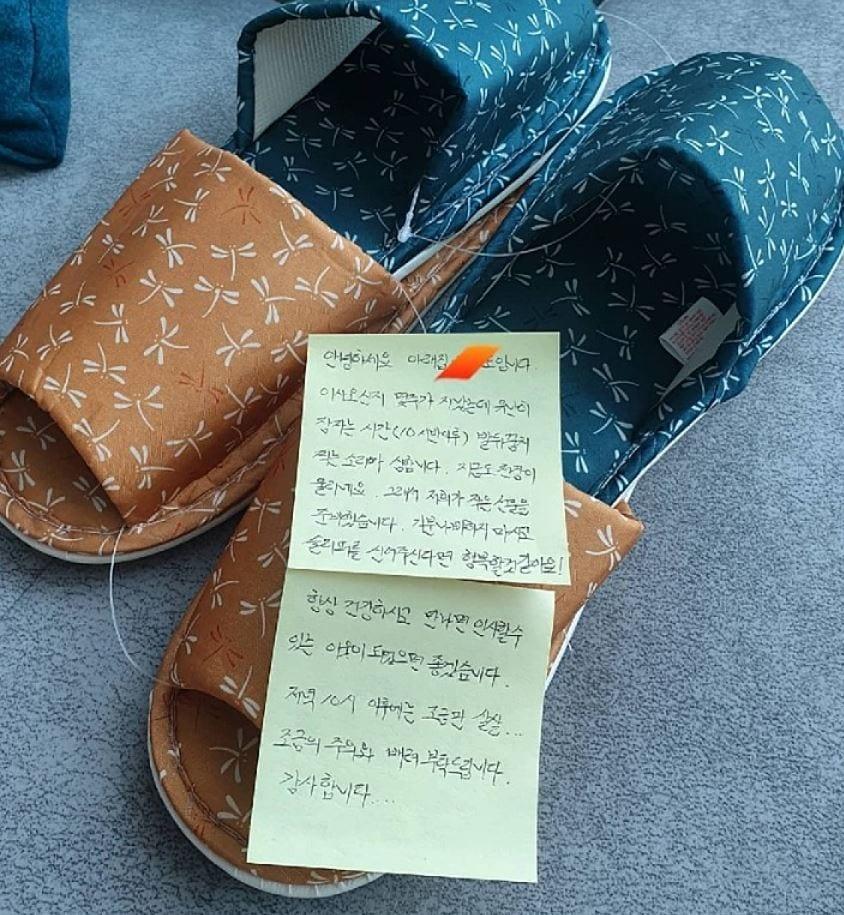 안녕하세요 아래집 입니다.
이사오신지 몇주가 지났는데 유난히
잠자는 시간(10시반이후) 발뒤꿈치
찍는 소리가 심합니다. 지금도 천장이
울리네요. 그래서 저희가 작은 선물을
준비했습니다. 기분나빠하지 마시고
슬리퍼를 신어주신다면 행복할것 같아요!
항상 건강하시고 만나면 인사할수
있는 이웃이 되었으면 좋겠습니다.
저녁 10시 이후에는 조금만 살살...
조금의 주의와 배려 부탁드립니다.
감사합니다....